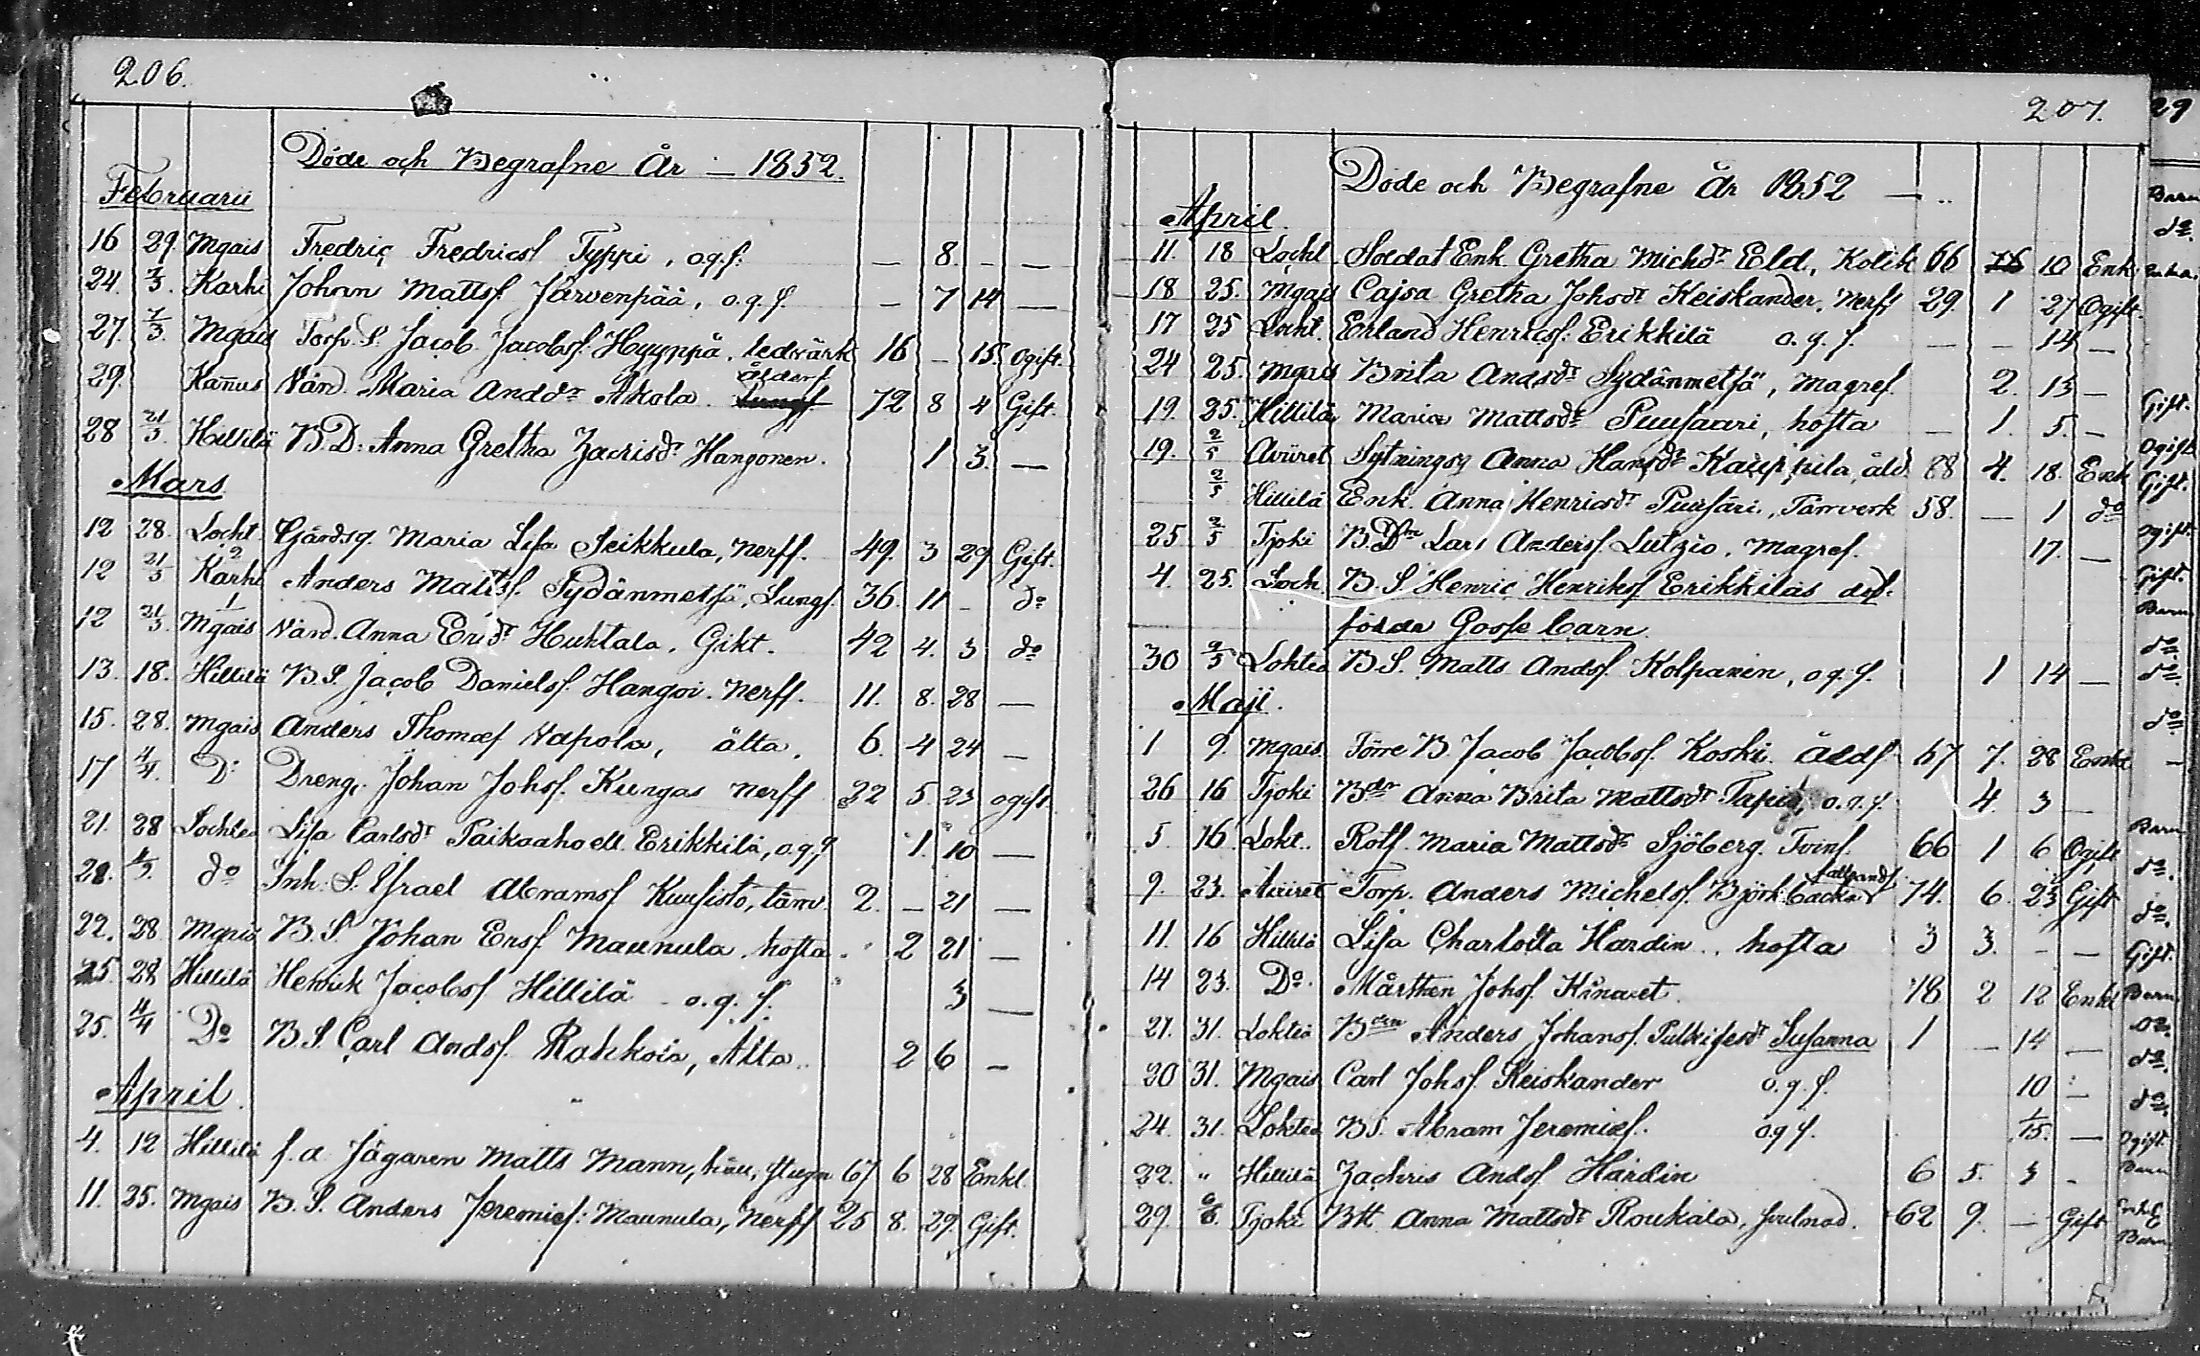 206.
Döde och Begrafne År — 1852.
Februarii
16 29. Mgais Fredric Fredricsſ Typpi, o.g.f. — 8. — —
24. 7/3. Karhi Johan Mattsſ. Järvenpää, o.g.f. — 7 14 —
27. 7/3. Mgais Torp. S. Jacob Jacobsſ. Hyyppä, Ledvärk 16 — 15. Ogift.
29. Kañus Vänd. Maria Andsdr Akola. Ålderſ 72 8 4 Gift.
28 21/3. Hillilä B.D: Anna Gretha Zacrisdr Hangonen. 1 3. —
Mars
12 28. Locht. Gårdsq. Maria Lisa Seikkula, Nerff. 49. 3 29 Gift.
12 21/3 Karhi Anders Mattsſ. Sydänmetſä, Lungſ. 36. 11 — do
12 21/3. Mgais Värd. Anna Ersdr Huhtala. Gikt. 42 4. 3 do
13. 18. Hillilä B.S. Jacob Danielsſ. Hangoi. Nerff. 11. 8. 28 —
15. 28. Mgais Anders Thomæſ Vapola, älta. 6. 4 24 —
17 4/4. Do Dreng. Johan Johsſ. Kungas Nerff 22 5. 23 ogift.
21. 28 Lochteå Lisa Carlsdr Paikaaho ell. Erikkilä, o.g.f. 1. 10 —
28. 4/5. do Inh: S. Iſrael Abramsſ Kuusisto, tärv. 2. — 21 —
22. 28 Mgais B.S. Johan Ersſ. Maunula, hosta. 2 21 —
25 28 Hillilä Henrik Jacobsſ Hillilä o.g.f. 3 —
25. 4/4 Do B.S. Carl Andsſ. Rahkola, Älta. 2 6 —
April.
4. 12 Hillilä f.d. Jägaren Matts Mann, 67 6 28 Enkl.
11. 25. Mgais B.S. Anders Jeremieſ: Maunula, Nerff 25 8. 29. Gift.
207.
Döde och Begrafne År 1852 —
April.
11. 18 Locht. Soldat Enk. Gretha Michsdr Eld, Kolik 66 10 Enk.
18 25. Mgais Cajsa Gretha Johsdr Keiskander. Nerff 29. 1 27 Ogift.
17 25 Locht. Erland Henricsſ: Erikkilä o.g.f. — — 14 —
24 25. Mgais Brita Andsdr Sydänmetſä, Magref. 2. 13 —
19. 25. Hillilä Maria Mattsdr Puusaari, hosta — 1. 5. —
19. 2/5 Aviiret Sytningsq Anna Hansdr Kauppila, åld. 88 4. 18. Enk.
2/5 Hillilä Enk. Anna Henricsdr Puusari, Tarmverk 58. — 1 do
25 2/5 Tjoki B.Dn Lars Andersſ. Lutzio. Magref. 17. —
4. 25. Loch B.S. Henric Henriksſ Erikkiläs död-
födda Gosse barn.
30 9/5 Lohteå B.S. Matts Andsſ. Kolpanen, o.g.f. 1 14 —
Maji.
1 9. Mgais. Förre B. Jacob Jacobsſ. Koski. Åldſ 67 7. 28 Enkl.
26 16 Tjoki Bdr Anna Brita Mattsdr Tapio, o.g.f. 4. 3 —
5. 16 Loht. Rotf. Maria Mattsdr Sjöberg. Tvinſ. 66 1 6 Ogift
9. 23. Aviiret Torp. Anders Michelsſ. Björkbacka 74. 6. 23 Gift
11. 16 Hillilä Lisa Charlotta Hardin.. hosta 3 3. — —
14 23. Do. Mårthen Johsſ. Kinaret 78 2 12 Enkl
21. 31. Lohteå Bdn Anders Johansſ. Susanna 1 — 14 —
20 31. Mgais Carl Johsſ. Keiskander o.g.f. 10 —
24. 31. Lohteå B.S. Abram Jeremieſ. o.g.f. 1/15. —
22. " Hillilä Zachris Andsſ Hardin 6 5. 3 -
29. 6/6. Tjoki BH Anna Mattsdr Roukala, svulnad. 62 9. — Gift